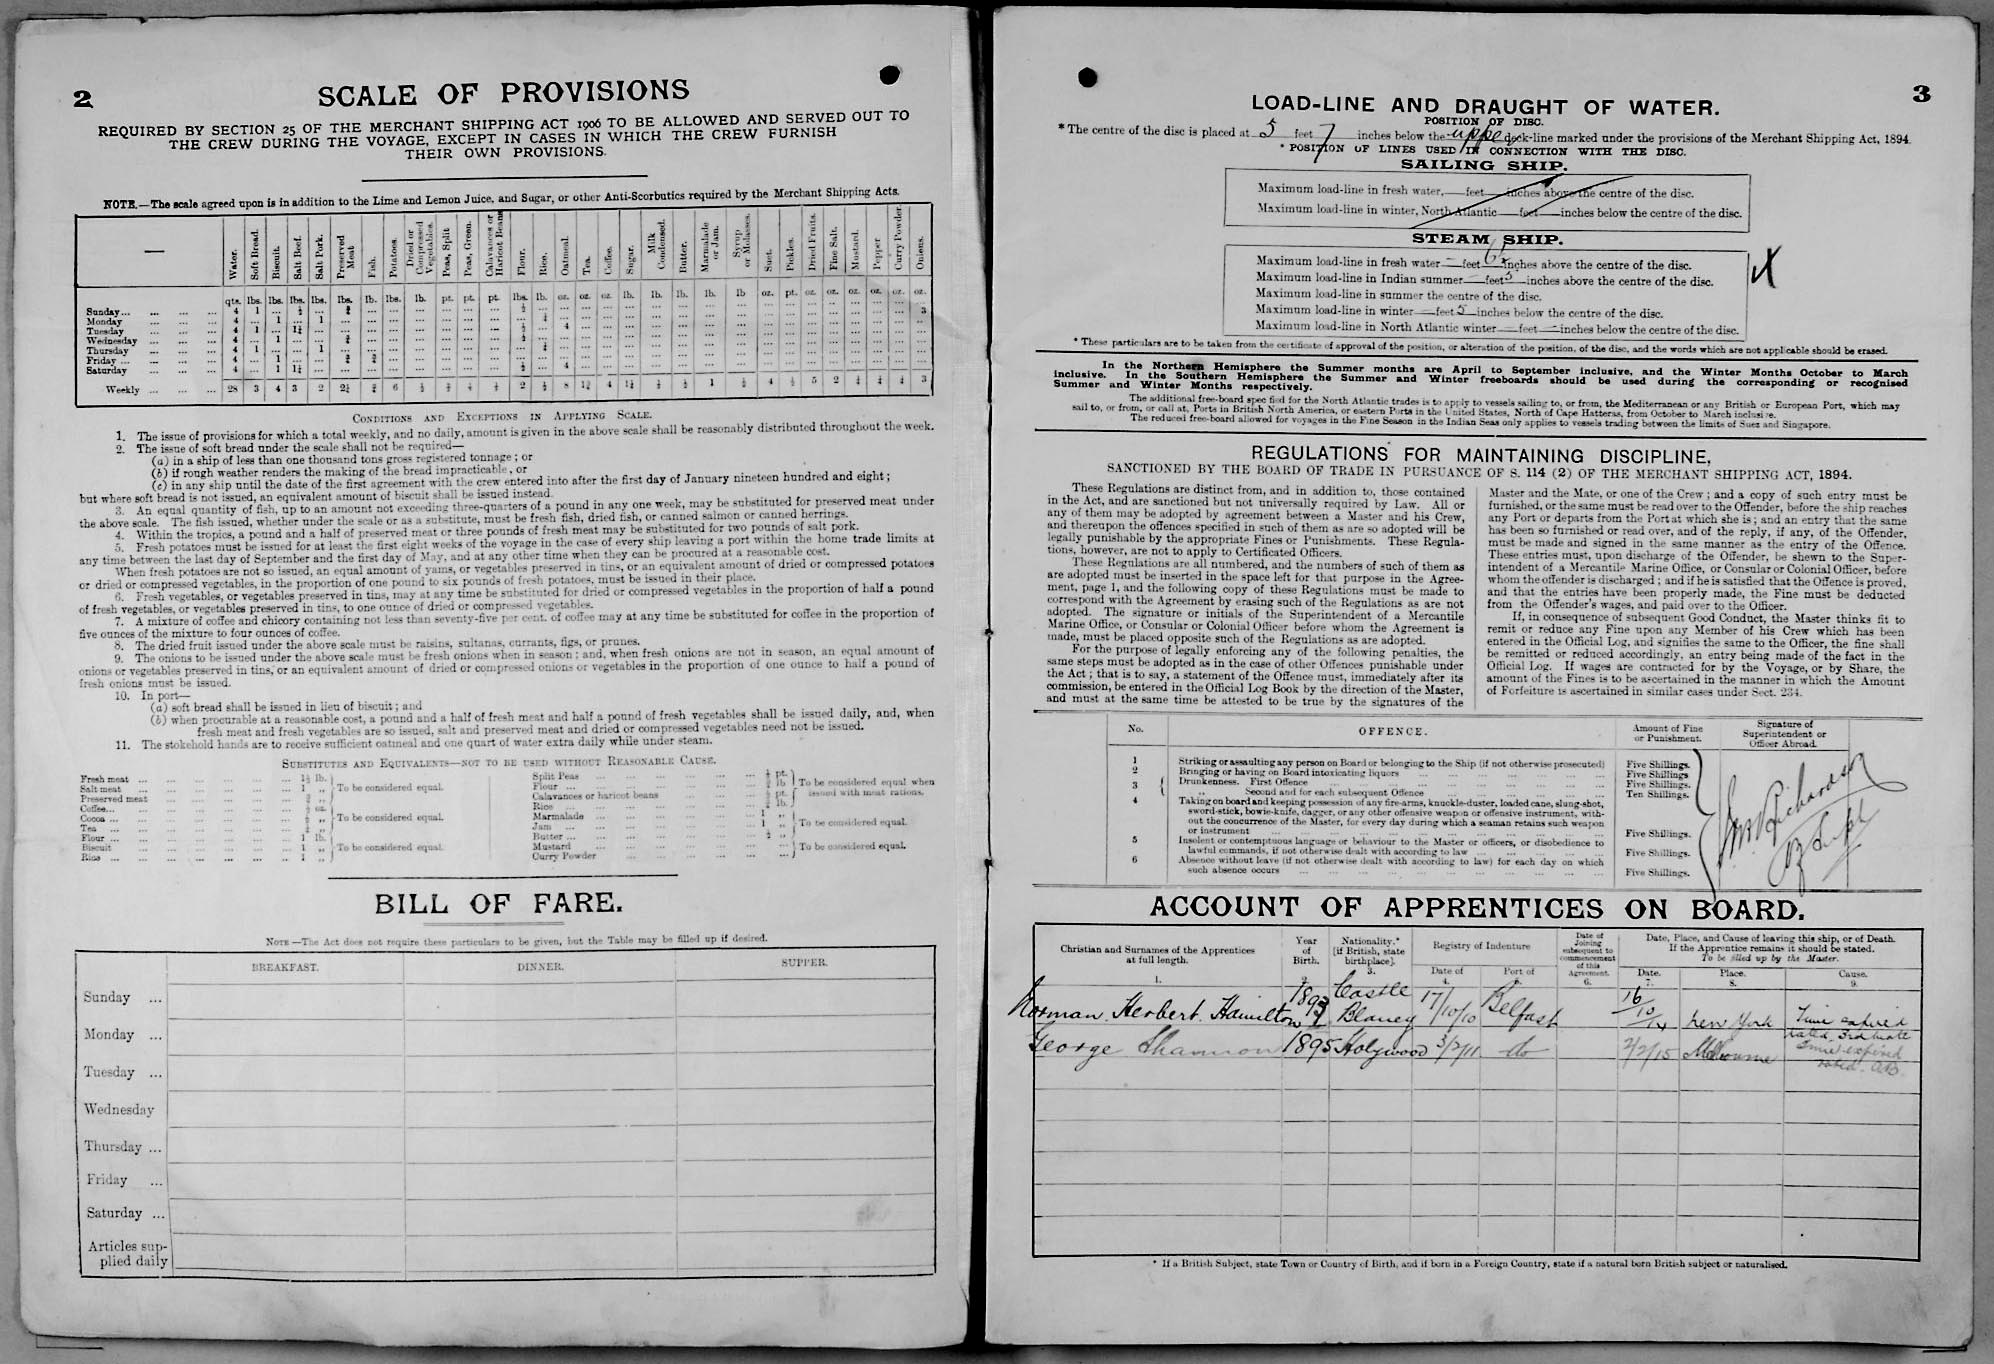 2
SCALE OF PROVISIONS
REQUIRED BY SECTION 25 OF THE MERCHANT SHIPPING ACT 1906 TO BE ALLOWED AND SERVED OUT TO
THE CREW DURING THE VOYAGE, EXCEPT IN CASES IN WHICH THE CREW FURNISH
THEIR OWN PROVISIONS.
NOTE.—The scale agreed upon is in addition to the Lime and Lemon Juice, and Sugar, or other Anti-Scorbutics required by the Merchant Shipping Acts.
— Water. Soft Bread. Biscuit. Salt Beef. Salt Pork. Preserved Meat Fish. Potatoes. Dried or Compressed Vegetables. Peas, Split Peas, Green. Calavances or Haricot Beans Flour. Rice. Oatmeal. Tea. Coffee. Sugar. Milk Condensed. Butter. Marmalade or Jam. Syrup or Molasses. Suet. Pickles. Dried Fruits. Fine Salt. Mustard. Pepper Curry Powder. Onions.
qts. lbs. lbs. lbs. lbs. lbs. lb. lbs. lb. pt. pt. pt. lbs. lb. oz. oz. oz. lb. lb. lb. lb. lb oz. pt. oz. oz. oz. oz. oz. oz.
Sunday... ... ... ... 4 1 ... ½ ... ¾ ... ... ... ... ... ... ½ ... ... ... ... ... ... ... ... ... ... ... ... ... ... ... ... 3
Monday ... ... ... 4 ... 1 ... 1 ... ... ... ... ... ... ... ... ½
Tuesday ... ... ... 4 1 ... 1½ ... ... ... ... ... ... ... ... ½ ... 4
Wednesday ... ... ... 4 ... 1 ... ... ¾ ... ... ... ... ... ... ½
Thursday ... ... ... 4 1 ... ... 1 ... ... ... ... ... ... ... ... ½
Friday ... ... ... ... 4 ... 1 ... ... ¾ ¾
Saturday ... ... ... 4 ... 1 1¼ ... ... ... ... ... ... ... ... ½ ... 4
Weekly ... ... ... 28 3 4 3 2 2¼ ¾ 6 ½ ⅔ ⅓ ⅓ 2 ½ 8 1¾ 4 1¼ ⅓ ½ 1 ½ 4 ½ 5 2 ¼ ¼ ¼ 3
CONDITIONS AND EXCEPTIONS IN APPLYING SCALE.
1. The issue of provisions for which a total weekly, and no daily, amount is given in the above scale shall be reasonably distributed throughout the week.
2. The issue of soft bread under the scale shall not be required—
(a) in a ship of less than one thousand tons gross registered tonnage; or
(b) if rough weather renders the making of the bread impracticable, or
(c) in any ship until the date of the first agreement with the crew entered into after the first day of January nineteen hundred and eight;
but where soft bread is not issued, an equivalent amount of biscuit shall be issued instead.
3. An equal quantity of fish, up to an amount not exceeding three-quarters of a pound in any one week, may be substituted for preserved meat under
the above scale. The fish issued, whether under the scale or as a substitute, must be fresh fish, dried fish, or canned salmon or canned herrings.
4. Within the tropics, a pound and a half of preserved meat or three pounds of fresh meat may be substituted for two pounds of salt pork.
5. Fresh potatoes must be issued for at least the first eight weeks of the voyage in the case of every ship leaving a port within the home trade limits at
any time between the last day of September and the first day of May, and at any other time when they can be procured at a reasonable cost.
When fresh potatoes are not so issued, an equal amount of yams, or vegetables preserved in tins, or an equivalent amount of dried or compressed potatoes
or dried or compressed vegetables, in the proportion of one pound to six pounds of fresh potatoes, must be issued in their place.
6. Fresh vegetables, or vegetables preserved in tins, may at any time be substituted for dried or compressed vegetables in the proportion of half a pound
of fresh vegetables, or vegetables preserved in tins, to one ounce of dried or compressed vegetables.
7. A mixture of coffee and chicory containing not less than seventy-five per cent. of coffee may at any time be substituted for coffee in the proportion of
five ounces of the mixture to four ounces of coffee.
8. The dried fruit issued under the above scale must be raisins, sultanas, currants, figs, or prunes.
9. The onions to be issued under the above scale must be fresh onions when in season; and, when fresh onions are not in season, an equal amount of
onions or vegetables preserved in tins, or an equivalent amount of dried or compressed onions or vegetables in the proportion of one ounce to half a pound of
fresh onions must be issued.
10. In port—
(a) soft bread shall be issued in lieu of biscuit; and
(b) when procurable at a reasonable cost, a pound and a half of fresh meat and half a pound of fresh vegetables shall be issued daily, and, when
fresh meat and fresh vegetables are so issued, salt and preserved meat and dried or compressed vegetables need not be issued.
11. The stokehold hands are to receive sufficient oatmeal and one quart of water extra daily while under steam.
SUBSTITUTES AND EQUIVALENTS—NOT TO BE USED WITHOUT REASONABLE CAUSE.
Fresh meat ... 1½ lb.
Salt meat ... 1 „ To be considered equal.
Preserved meat ... ¾ „
Coffee... ... ½ oz.
Cocoa ... „ To be considered equal.
Tea ... ¼ „
Flour ... 1 lb.
Biscuit ... 1 „ To be considered equal.
Rice ... 1 „
Split Peas ... pt.
Flour ... lb To be considered equal when
Calavances or haricot beans ... pt. issued with meat rations.
Rice ... lb.
Marmalade ... 1 „
Jam ... 1 „ To be considered equal.
Butter ... ½ „
Mustard ... To be considered equal.
Curry Powder ...
BILL OF FARE.
NOTE—The Act does not require these particulars to be given, but the Table may be filled up if desired.
BREAKFAST. DINNER. SUPPER.
Sunday ...
Monday ...
Tuesday ...
Wednesday
Thursday ...
Friday ...
Saturday ...
Articles sup-
plied daily
3
LOAD-LINE AND DRAUGHT OF WATER.
POSITION OF DISC.
* The centre of the disc is placed at 5 feet 7 inches below the upper deck-line marked under the provisions of the Merchant Shipping Act, 1894.
* POSITION OF LINES USED IN CONNECTION WITH THE DISC.
SAILING SHIP.
Maximum load-line in fresh water, — feet — inches above the centre of the disc.
Maximum load-line in winter, North Atlantic — feet — inches below the centre of the disc.
STEAM SHIP.
Maximum load-line in fresh water — feet 6½ inches above the centre of the disc.
Maximum load-line in Indian summer — feet 5 inches above the centre of the disc.
Maximum load-line in summer the centre of the disc.
Maximum load-line in winter — feet 5 inches below the centre of the disc.
Maximum load-line in North Atlantic winter — feet — inches below the centre of the disc.
X
* These particulars are to be taken from the certificate of approval of the position, or alteration of the position, of the disc, and the words which are not applicable should be erased.
In the Northern Hemisphere the Summer months are April to September inclusive, and the Winter Months October to March
inclusive. In the Southern Hemisphere the Summer and Winter freeboards should be used during the corresponding or recognised
Summer and Winter Months respectively.
The additional free-board specified for the North Atlantic trades is to apply to vessels sailing to, or from, the Mediterranean or any British or European Port, which may
sail to, or from, or call at, Ports in British North America, or eastern Ports in the United States, North of Cape Hatteras, from October to March inclusive.
The reduced free-board allowed for voyages in the Fine Season in the Indian Seas only applies to vessels trading between the limits of Suez and Singapore.
REGULATIONS FOR MAINTAINING DISCIPLINE,
SANCTIONED BY THE BOARD OF TRADE IN PURSUANCE OF S. 114 (2) OF THE MERCHANT SHIPPING ACT, 1894.
These Regulations are distinct from, and in addition to, those contained
in the Act, and are sanctioned but not universally required by Law. All or
any of them may be adopted by agreement between a Master and his Crew,
and thereupon the offences specified in such of them as are so adopted will be
legally punishable by the appropriate Fines or Punishments. These Regula-
tions, however, are not to apply to Certificated Officers.
These Regulations are all numbered, and the numbers of such of them as
are adopted must be inserted in the space left for that purpose in the Agree-
ment, page 1, and the following copy of these Regulations must be made to
correspond with the Agreement by erasing such of the Regulations as are not
adopted. The signature or initials of the Superintendent of a Mercantile
Marine Office, or Consular or Colonial Officer before whom the Agreement is
made, must be placed opposite such of the Regulations as are adopted.
For the purpose of legally enforcing any of the following penalties, the
same steps must be adopted as in the case of other Offences punishable under
the Act; that is to say, a statement of the Offence must, immediately after its
commission, be entered in the Official Log Book by the direction of the Master,
and must at the same time be attested to be true by the signatures of the
Master and the Mate, or one of the Crew; and a copy of such entry must be
furnished, or the same must be read over to the Offender, before the ship reaches
any Port or departs from the Port at which she is; and an entry that the same
has been so furnished or read over, and of the reply, if any, of the Offender,
must be made and signed in the same manner as the entry of the Offence.
These entries must, upon discharge of the Offender, be shewn to the Super-
intendent of a Mercantile Marine Office, or Consular or Colonial Officer, before
whom the offender is discharged; and if he is satisfied that the Offence is proved,
and that the entries have been properly made, the Fine must be deducted
from the Offender's wages, and paid over to the Officer.
If, in consequence of subsequent Good Conduct, the Master thinks fit to
remit or reduce any Fine upon any Member of his Crew which has been
entered in the Official Log, and signifies the same to the Officer, the fine shall
be remitted or reduced accordingly, an entry being made of the fact in the
Official Log. If wages are contracted for by the Voyage, or by Share, the
amount of the Fines is to be ascertained in the manner in which the Amount
of Forfeiture is ascertained in similar cases under Sect. 234.
No. OFFENCE. Amount of Fine or Punishment. Signature of Superintendent or Officer Abroad.
1 Striking or assaulting any person on Board or belonging to the Ship (if not otherwise prosecuted) Five Shillings.
2 Bringing or having on Board intoxicating liquors ... Five Shillings
3 Drunkenness. First Offence ... Five Shillings.
„ Second and for each subsequent Offence ... Ten Shillings.
4 Taking on board and keeping possession of any fire-arms, knuckle-duster, loaded cane, slung-shot,
sword-stick, bowie-knife, dagger, or any other offensive weapon or offensive instrument, with-
out the concurrence of the Master, for every day during which a seaman retains such weapon
or instrument ... Five Shillings.
5 Insolent or contemptuous language or behaviour to the Master or officers, or disobedience to
lawful commands, if not otherwise dealt with according to law ... Five Shillings.
6 Absence without leave (if not otherwise dealt with according to law) for each day on which
such absence occurs ... Five Shillings.
Richardson
Supt
ACCOUNT OF APPRENTICES ON BOARD.
Christian and Surnames of the Apprentices at full length. Year of Birth. Nationality.* [if British, state birthplace]. Registry of Indenture Date of Joining subsequent to commencement of this Agreement. Date, Place, and Cause of leaving this ship, or of Death. If the Apprentice remains it should be stated. To be filled up by the Master.
Date of Port of Date. Place. Cause.
1. 2. 3. 4. 5. 6. 7. 8. 9.
Norman Herbert Hamilton 1893 Castle Blaney 17/10/10 Belfast 16/10/14 New York Time expired rated 3rd Mate
George Shannon 1895 Holywood 3/2/11 do 2/2/15 Melbourne Time expired rated A.B.
* If a British Subject, state Town or Country of Birth, and if born in a Foreign Country, state if a natural born British subject or naturalised.